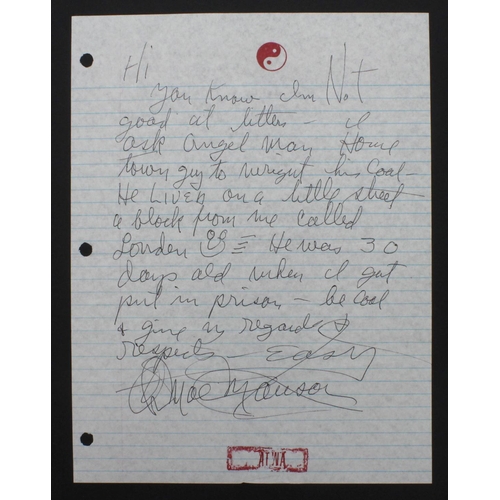 Hi
You Know Im Not
good at letters – il
ask Angel Man Home
town guy to wright his Coal –
He Lives on a little street
a block from me called
London He was 30
days old when I got
put in prison – be cool
& give my regard &
respects – Easy
Manson
ATWA